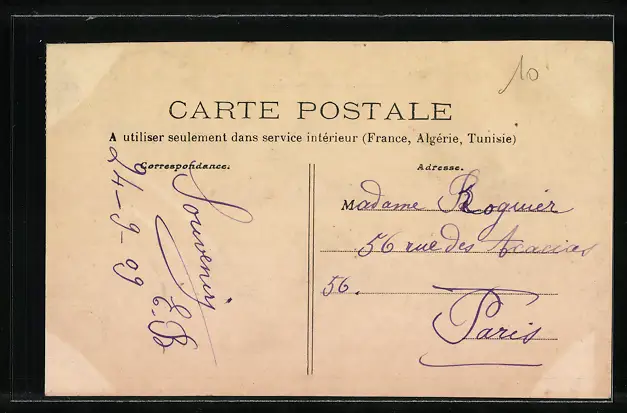 10
CARTE POSTALE
A utiliser seulement dans service intérieur (France, Algérie, Tunisie)
Correspondance.
24-9-09
Souvenirs
E.B
Adresse.
Madame Roguier
56 rue des Acacias
56.
Paris